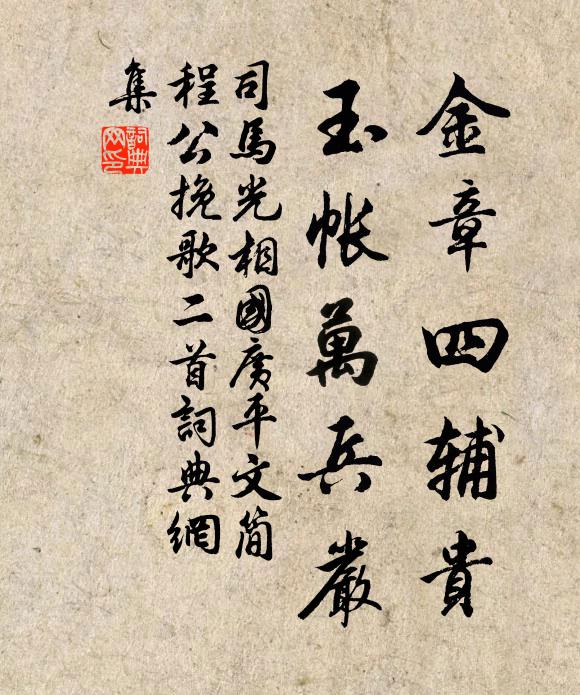 金章四辅貴
玉帐萬兵嚴
司馬光相國廣平文简
程公挽歌二首詞典網
集
詞典
网印